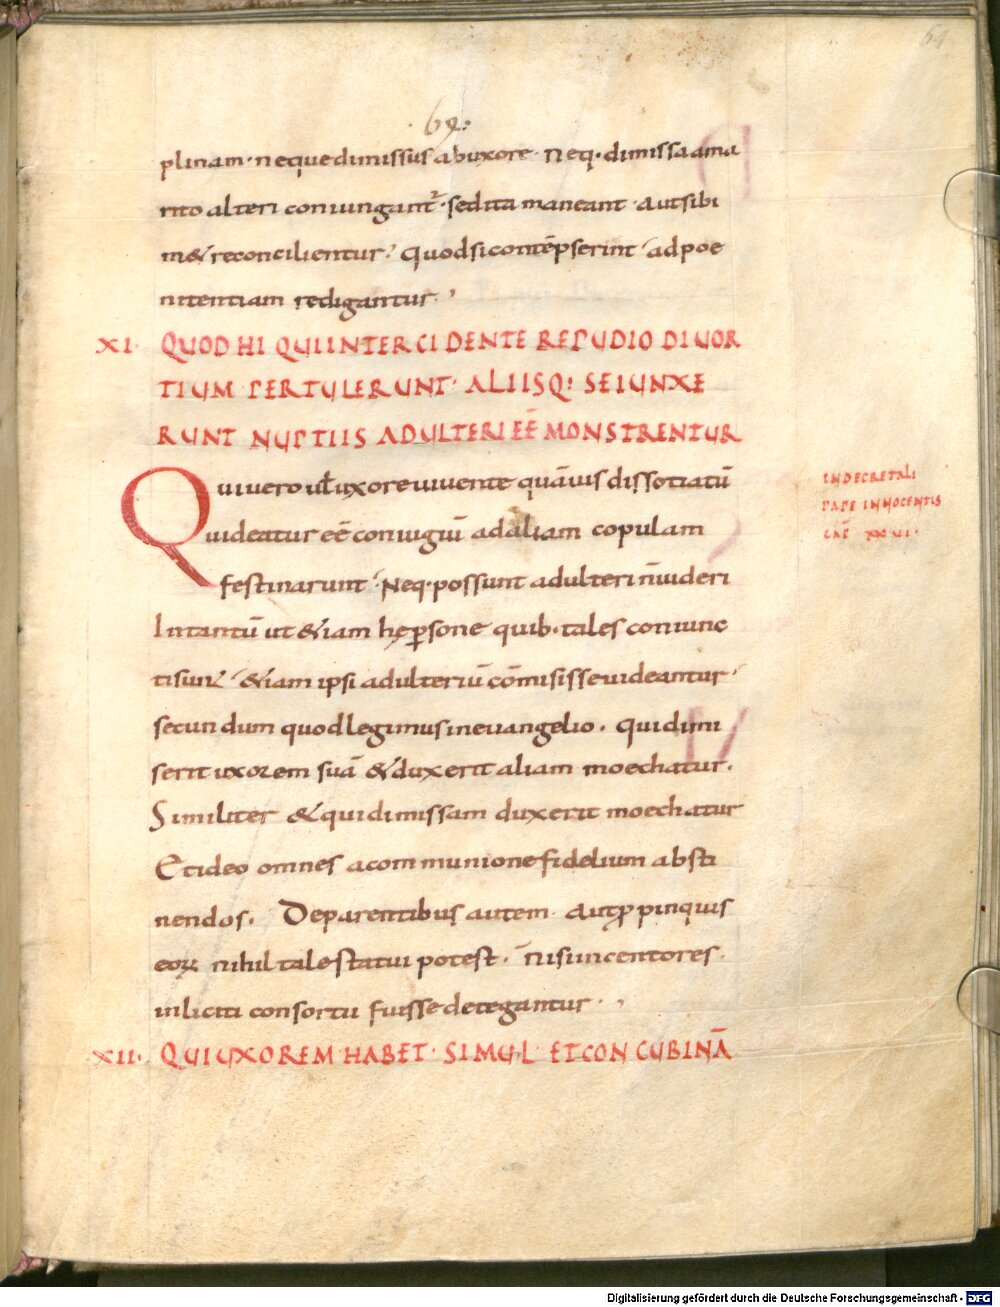 64
64:
plinam· nequedimissus abuxore· Neq· dimissaama
rito alteri coniungant᷑· sedita maneant· Autsibi
m& reconcilientur· Quodsicontēpserint· adpoe
nitentiam redigantur·,
XI· QUOD HI QUIINTERCIDENTE REPUDIO DIUOR
TIUM PERTULERUNT· ALIISQ: SEIUNXE
RUNT NUPTIIS ADULTERI EĒ MONSTRENTUR
Qui uero ul̄ uxore uiuente quāuis dissotiatū
uideatur eē coniugiū adaliam copulam
festinarunt· Neq·possunt adulteri n̄uideri
Intantū ut &iam hęꝑsone quib·tales coniunc
tisunt· &iam ipsi adulteriū cōmisisseuideantur·
secundum quodlegimus ineuangelio· Quidimi
serit uxorem suā &duxerit aliam moechatur·
Similiter &quidimissam duxerit moechatur
Etideo omnes acommunionefidelium absti
nendos· Deparentibus autem· Autꝓpinquis
eoꝝ nihil talestatui potest· n̄isiincentores·
inliciti consortii fuisse detegantur·,
XII· QUIUXOREM HABET· SIMUL ETCONCUBINĀ
INDECRETALI
PAPE INNOCENTIS
CAP̄ XXVI·
Digitalisierung gefördert durch die Deutsche Forschungsgemeinschaft - DFG